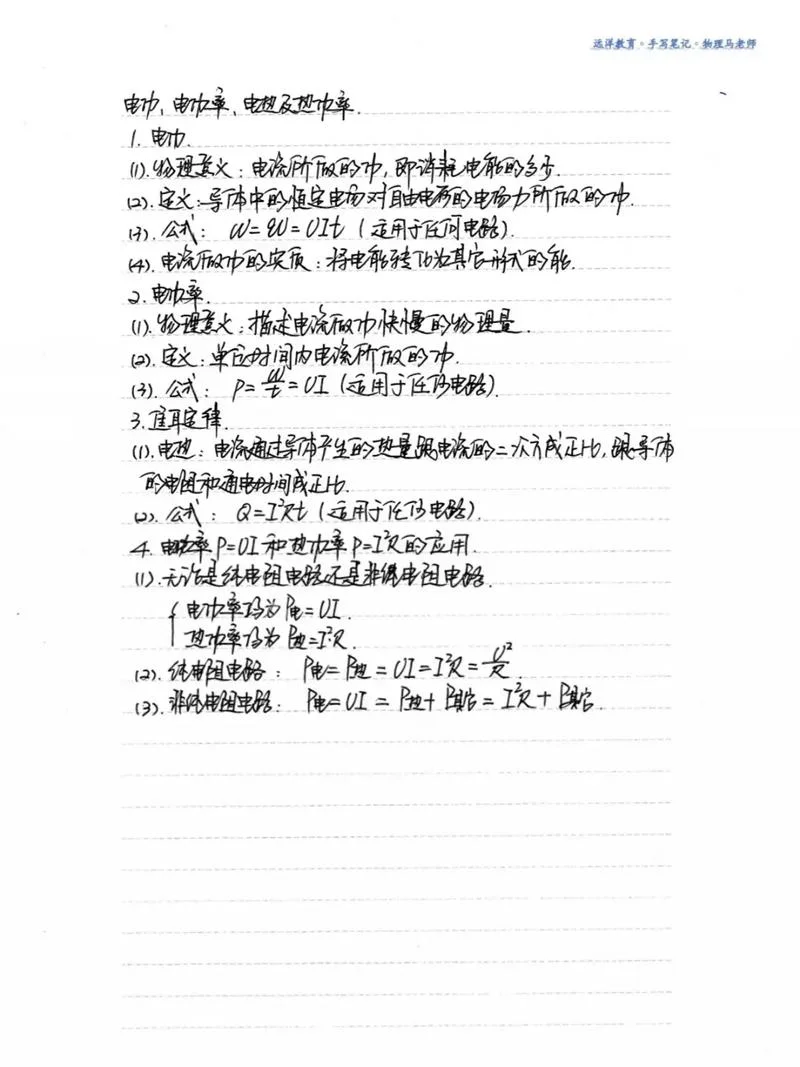 远洋教育。手写笔记。物理马老师
电功、电功率、电热及热功率.
1. 电功.
(1). 物理意义: 电流所做的功, 即消耗电能的多少.
(2). 定义: 导体中的恒定电场对自由电荷的电场力所做的功.
(3). 公式: W=qU=UIt (适用于任何电路).
(4). 电流做功的实质: 将电能转化为其它形式的能.
2. 电功率.
(1). 物理意义: 描述电流做功快慢的物理量.
(2). 定义: 单位时间内电流所做的功.
(3). 公式: P=W/t=UI (适用于任何电路).
3. 焦耳定律.
(1). 电热: 电流通过导体产生的热量跟电流的二次方成正比, 跟导体
的电阻和通电时间成正比.
(2). 公式: Q=I²Rt (适用于任何电路).
4. 电功率P=UI和热功率P=I²R的应用.
(1). 无论是纯电阻电路还是非纯电阻电路.
{ 电功率均为P电=UI.
热功率均为P热=I²R.
(2). 纯电阻电路: P电=P热=UI=I²R=U²/R.
(3). 非纯电阻电路: P电=UI=P热+P其它=I²R+P其它.